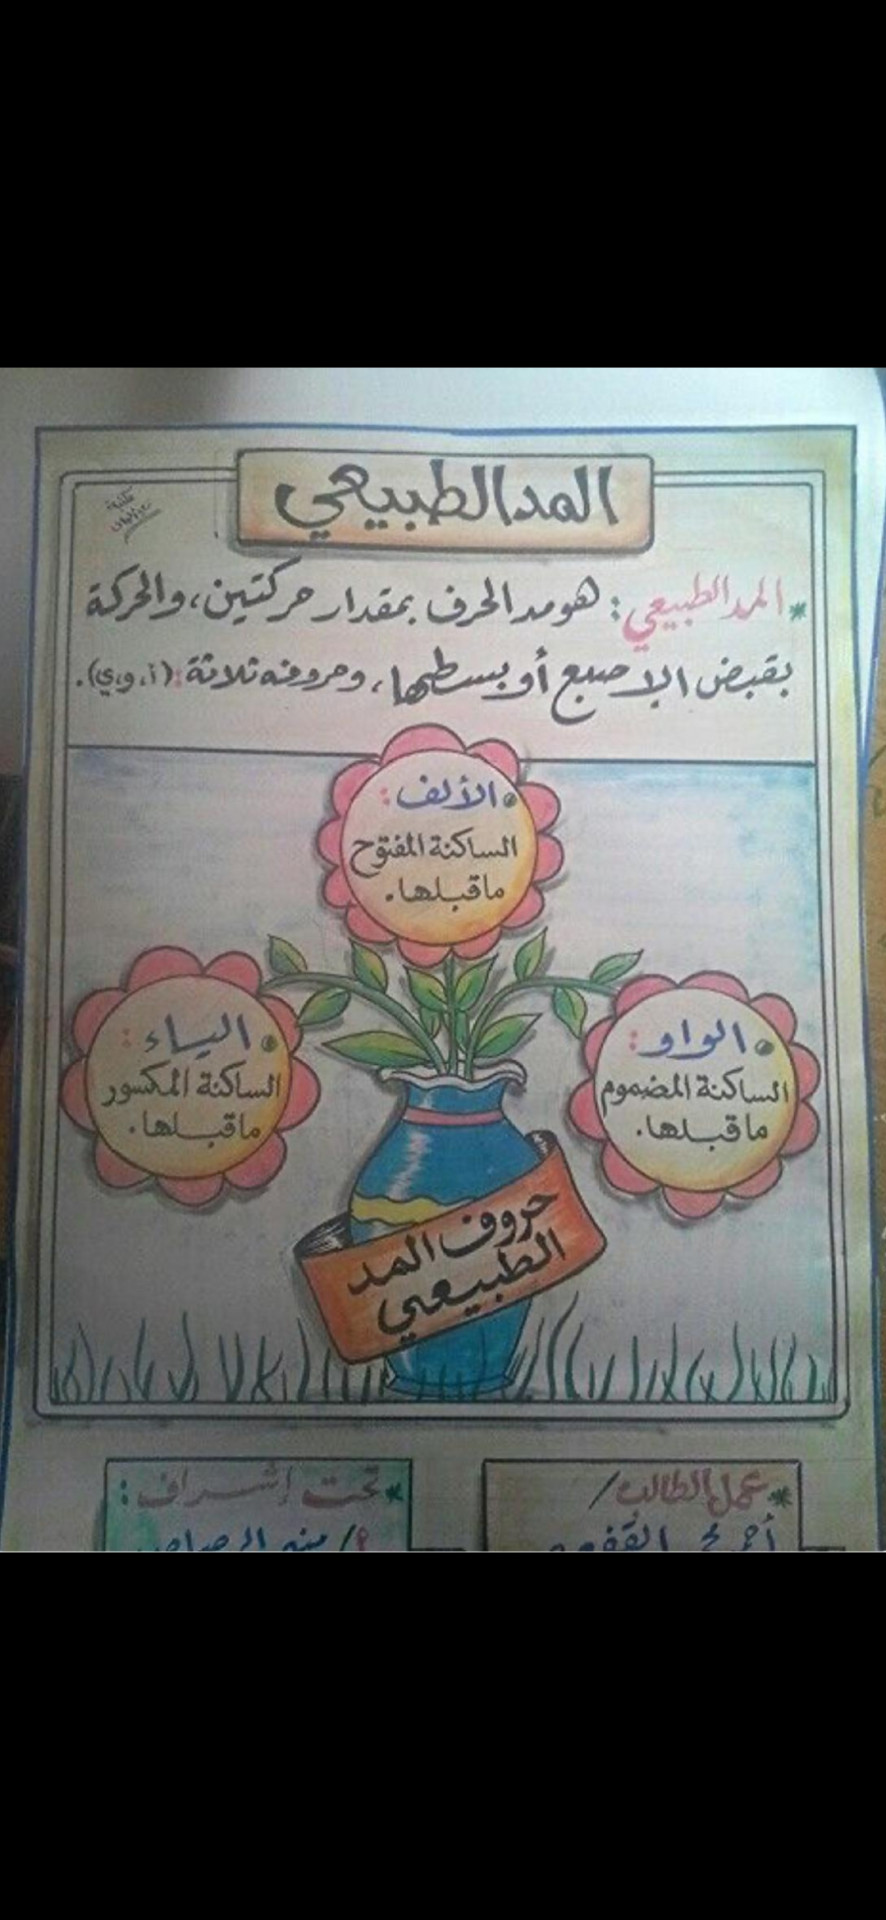 المد الطبيعي
مكتبة
* المد الطبيعي: هو مد الحرف بمقدار حركتين، والحركة
بقبض الإصبع أو بسطها، وحروفه ثلاثة: (أ، و، ي).
الألف:
الساكنة المفتوح
ما قبلها.
الواو:
الساكنة المضموم
ما قبلها.
الياء:
الساكنة المكسور
ما قبلها.
حروف المد
الطبيعي
* عمل الطالب/
* تحت إشراف: